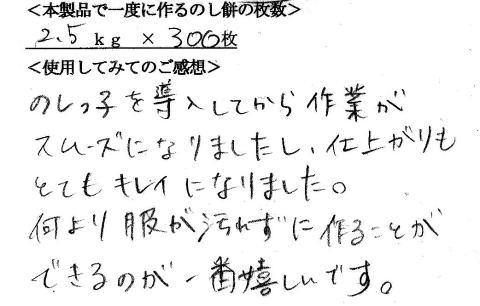 <本製品で一度に作るのし餅の枚数>
2.5 kg × 300枚
<使用してみてのご感想>
のしっ子を導入してから作業が
スムーズになりましたし、仕上がりも
とてもキレイになりました。
何より服が汚れずに作ることが
できるのが一番嬉しいです。